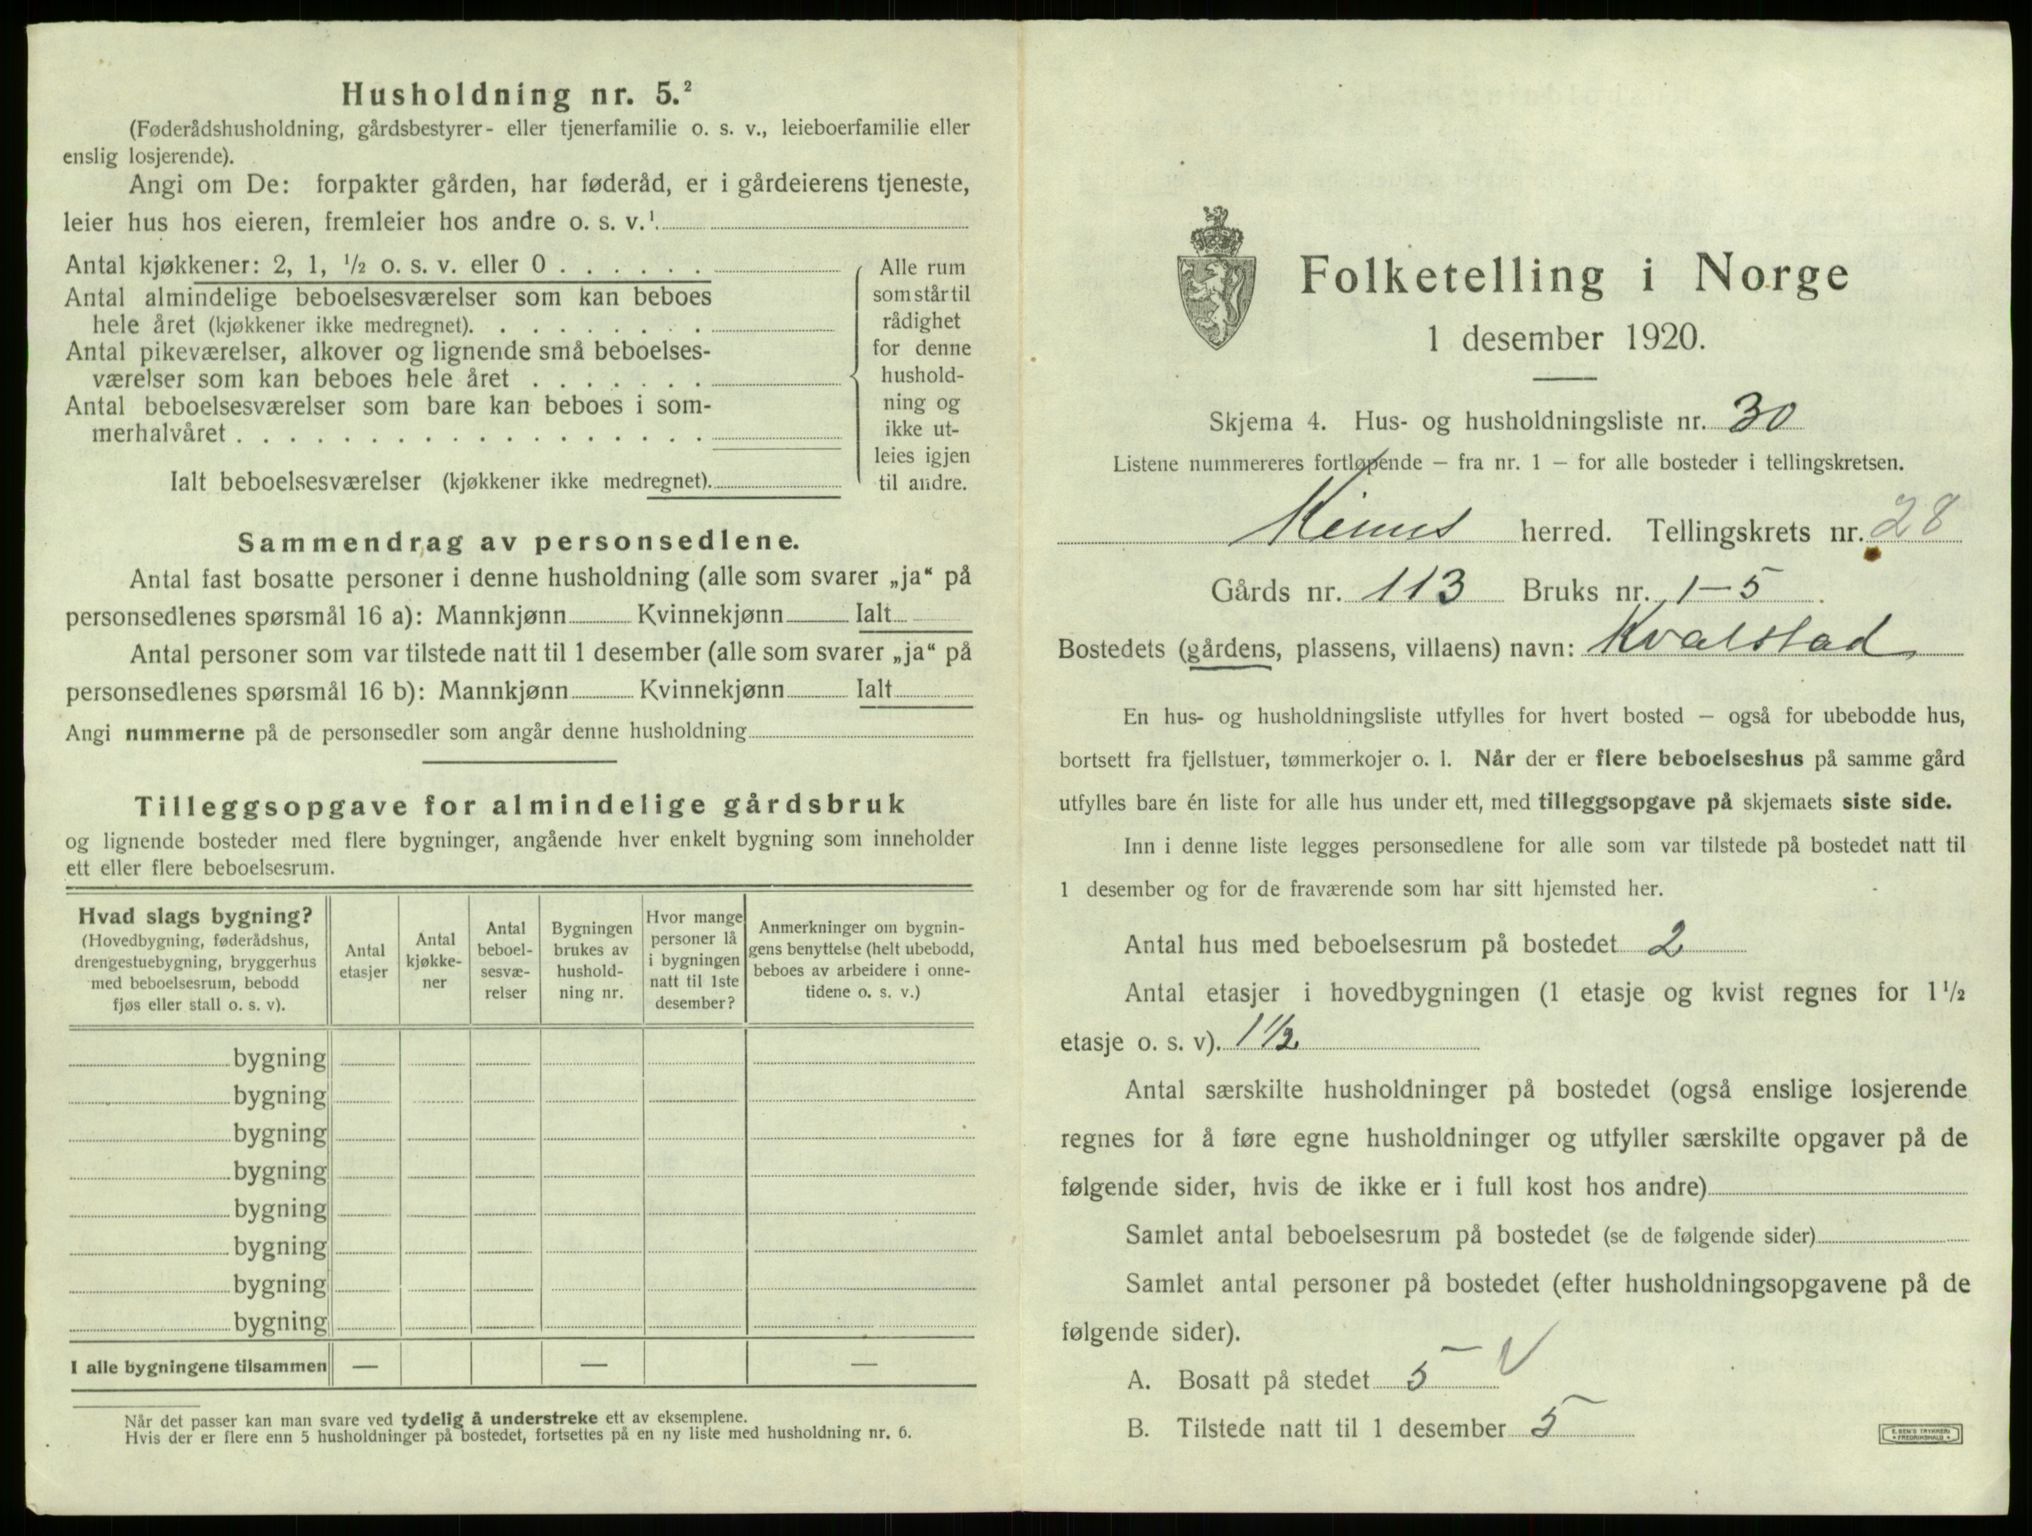 Husholdning nr. 5.²
(Føderådshusholdning, gårdsbestyrer- eller tjenerfamilie o. s. v., leieboerfamilie eller
enslig losjerende).
Angi om De: forpakter gården, har føderåd, er i gårdeierens tjeneste,
leier hus hos eieren, fremleier hos andre o. s. v.¹
Antal kjøkkener: 2, 1, ½ o. s. v. eller 0 . . . . . .
Antal almindelige beboelsesværelser som kan beboes
hele året (kjøkkener ikke medregnet). . . . . . . . .
Antal pikeværelser, alkover og lignende små beboelses-
værelser som kan beboes hele året . . . . . . .
Antal beboelsesværelser som bare kan beboes i som-
merhalvåret . . . . . . . . . . . . . . . . . .
Ialt beboelsesværelser (kjøkkener ikke medregnet).
Alle rum
som står til
rådighet
for denne
hushold-
ning og
ikke ut-
leies igjen
til andre.
Sammendrag av personsedlene.
Antal fast bosatte personer i denne husholdning (alle som svarer „ja“ på
personsedlenes spørsmål 16 a): Mannkjønn Kvinnekjønn Ialt
Antal personer som var tilstede natt til 1 desember (alle som svarer „ja“ på
personsedlenes spørsmål 16 b): Mannkjønn Kvinnekjønn Ialt
Angi nummerne på de personsedler som angår denne husholdning
Tilleggsopgave for almindelige gårdsbruk
og lignende bosteder med flere bygninger, angående hver enkelt bygning som inneholder
ett eller flere beboelsesrum.
Hvad slags bygning?
(Hovedbygning, føderådshus,
drengestuebygning, bryggerhus
med beboelsesrum, bebodd
fjøs eller stall o. s. v).
Antal
etasjer
Antal
kjøkke-
ner
Antal
beboel-
sesvæ-
relser
Bygningen
brukes av
hushold-
ning nr.
Hvor mange
personer lå
i bygningen
natt til 1ste
desember?
Anmerkninger om bygnin-
gens benyttelse (helt ubebodd,
beboes av arbeidere i onne-
tidene o. s. v.)
bygning
bygning
bygning
bygning
bygning
bygning
bygning
bygning
I alle bygningene tilsammen — — —
Når det passer kan man svare ved tydelig å understreke ett av eksemplene.
Hvis der er flere enn 5 husholdninger på bostedet, fortsettes på en ny liste med husholdning nr. 6.
Folketelling i Norge
1 desember 1920.
Skjema 4. Hus- og husholdningsliste nr. 30
Listene nummereres fortløpende – fra nr. 1 – for alle bosteder i tellingskretsen.
Kinns herred. Tellingskrets nr. 28
Gårds nr. 113 Bruks nr. 1–5
Bostedets (gårdens, plassens, villaens) navn: Kvalstad
En hus- og husholdningsliste utfylles for hvert bosted – også for ubebodde hus,
bortsett fra fjellstuer, tømmerkojer o. l. Når der er flere beboelseshus på samme gård
utfylles bare én liste for alle hus under ett, med tilleggsopgave på skjemaets siste side.
Inn i denne liste legges personsedlene for alle som var tilstede på bostedet natt til
1 desember og for de fraværende som har sitt hjemsted her.
Antal hus med beboelsesrum på bostedet 2
Antal etasjer i hovedbygningen (1 etasje og kvist regnes for 1½
etasje o. s. v). 1½
Antal særskilte husholdninger på bostedet (også enslige losjerende
regnes for å føre egne husholdninger og utfyller særskilte opgaver på de
følgende sider, hvis de ikke er i full kost hos andre)
Samlet antal beboelsesrum på bostedet (se de følgende sider)
Samlet antal personer på bostedet (efter husholdningsopgavene på de
følgende sider).
A. Bosatt på stedet 5 V
B. Tilstede natt til 1 desember 5
E. SEM'S TRYKKERI
FREDRIKSHALD